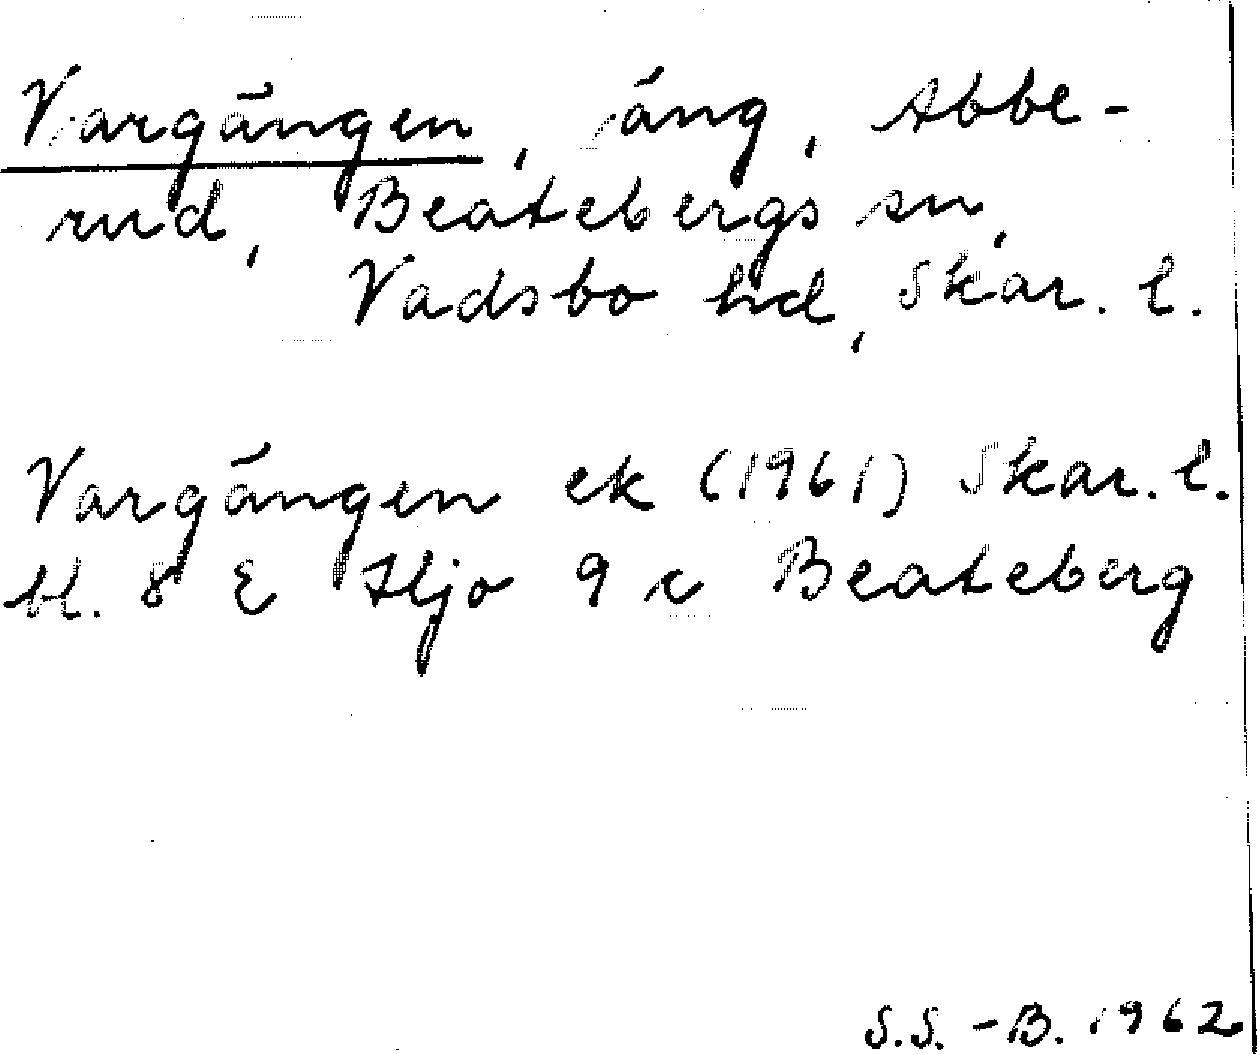 Vargängen, äng, Abbe-
rud, Beatebergs sn,
Vadsbo hd, Skar. l.
Vargängen ek (1961) Skar. l.
bl. 8 E Hjo 9 c Beateberg
S.S.-B. 1962